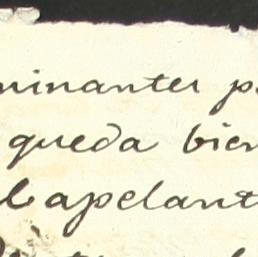 minantes p
queda bien
l apelant